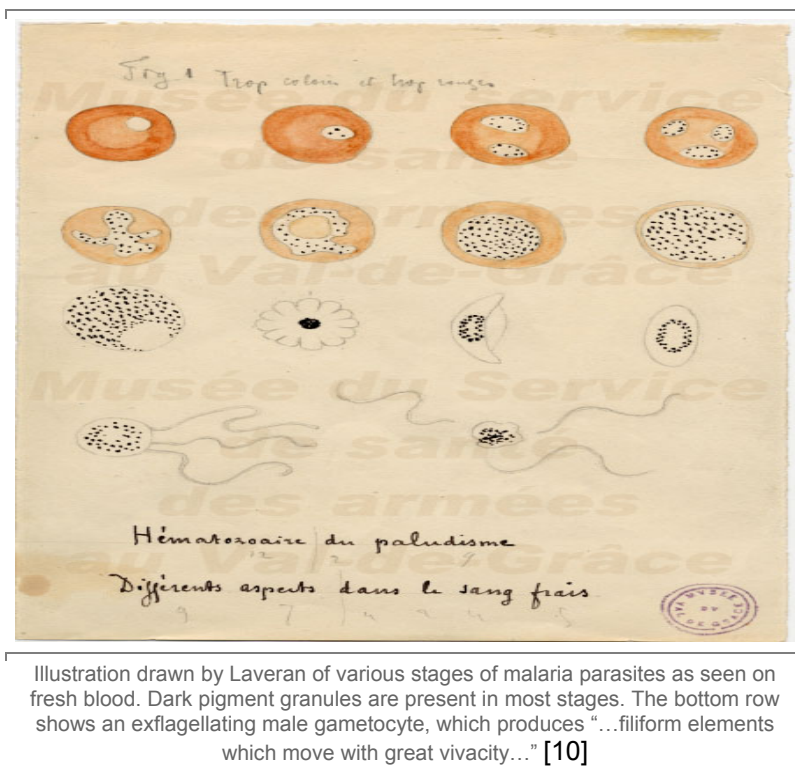 Fig 1 Trop colorié et trop rouges
Musée du Service
de santé
des armées
au Val-de-Grâce
Musée du Service
de santé
des armées
au Val-de-Grâce
Hématozoaire du paludisme
12 2 9
Différents aspects dans le sang frais
9 7 4 2 4 5
MUSÉE DU VAL DE GRACE
Illustration drawn by Laveran of various stages of malaria parasites as seen on
fresh blood. Dark pigment granules are present in most stages. The bottom row
shows an exflagellating male gametocyte, which produces “…filiform elements
which move with great vivacity…” [10]